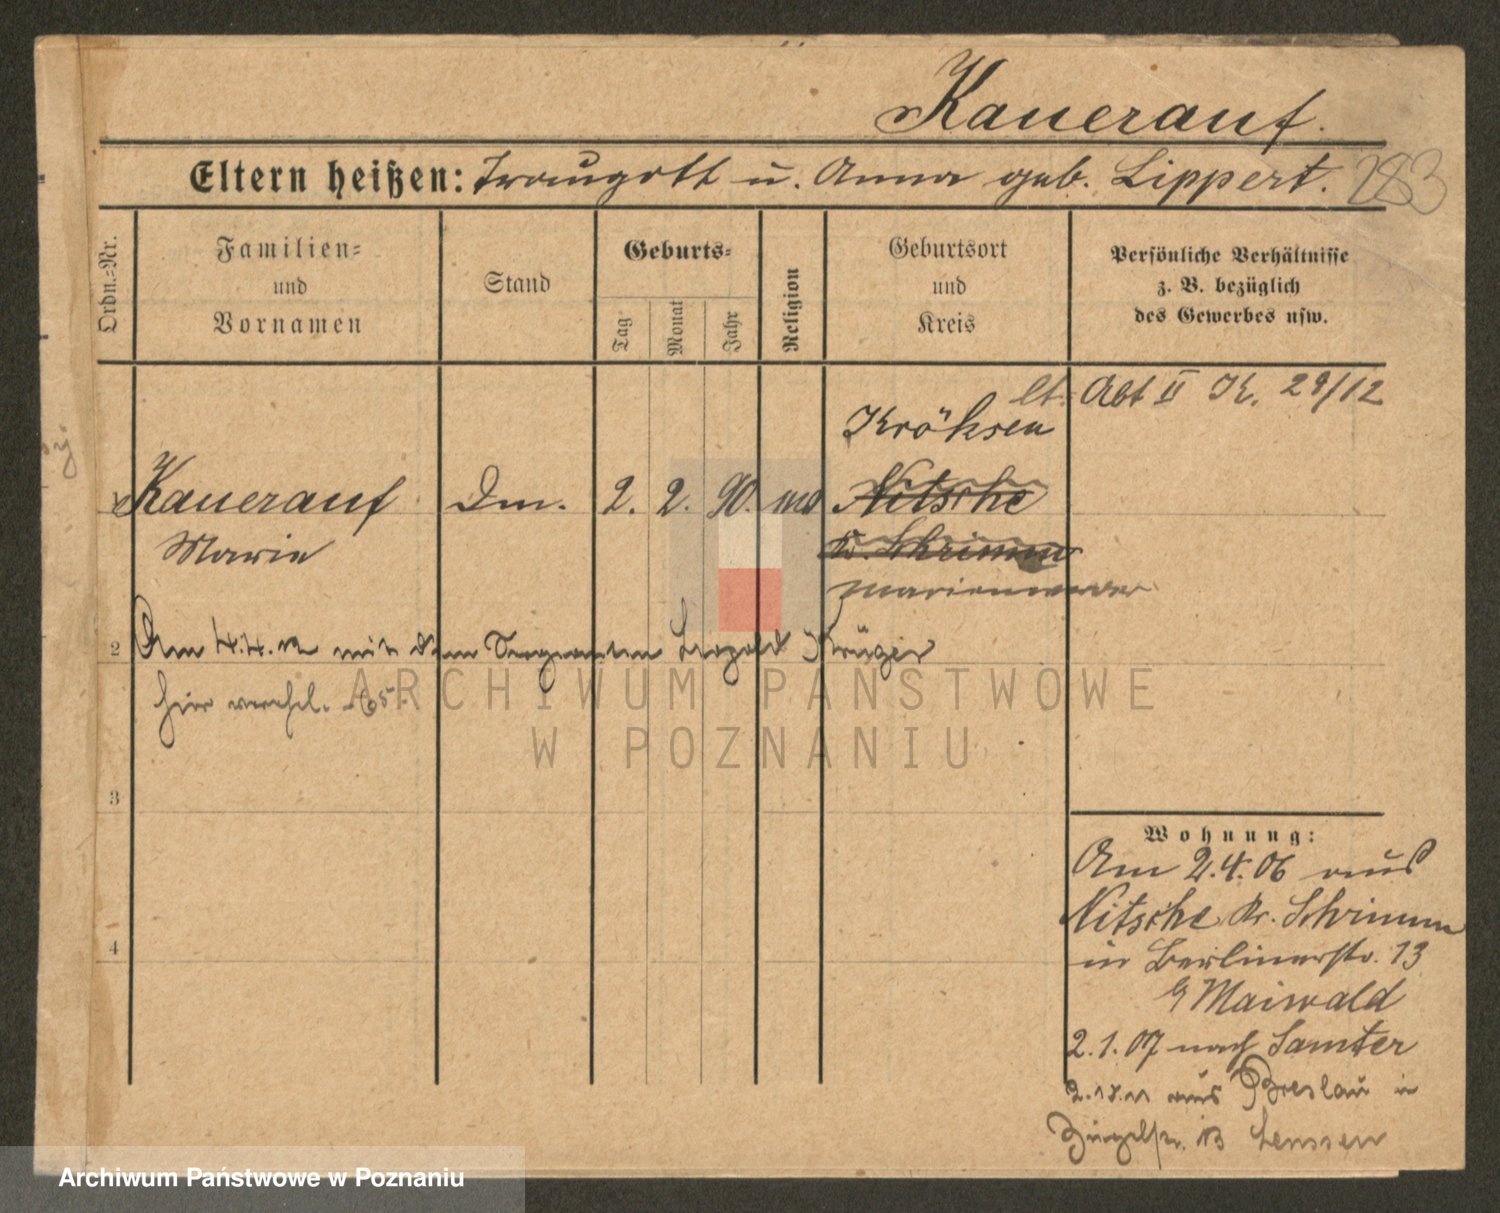 Kauerauf.
Eltern heißen: Traugott u. Anna geb. Lippert. 283
Ordn.-Nr.
Familien-
und
Vornamen
Stand
Geburts-
Tag
Monat
Jahr
Religion
Geburtsort
und
Kreis
Persönliche Verhältnisse
z. B. bezüglich
des Gewerbes usw.
lt. Abt II K. 29/12
Kröksen
Kauerauf Dm. 2. 2. 90. Nitsche
Marie Kr. Schrimm
Marienwerder
2 Am 4.4. mit dem Sergeanten Leopold Krüger
hier verehel.
3
4
Wohnung:
Am 2.4.06 aus
Nitsche Kr. Schrimm
in Berlinerstr. 13
b Maiwald
2.1.07 nach Samter
aus Breslau in
Lenssen
ARCHIWUM PAŃSTWOWE
W POZNANIU
Archiwum Państwowe w Poznaniu